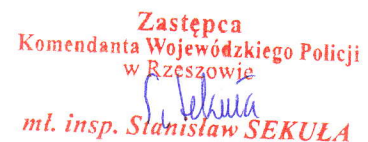 Zastępca
Komendanta Wojewódzkiego Policji
w Rzeszowie
S. Sekuła
mł. insp. Stanisław SEKUŁA